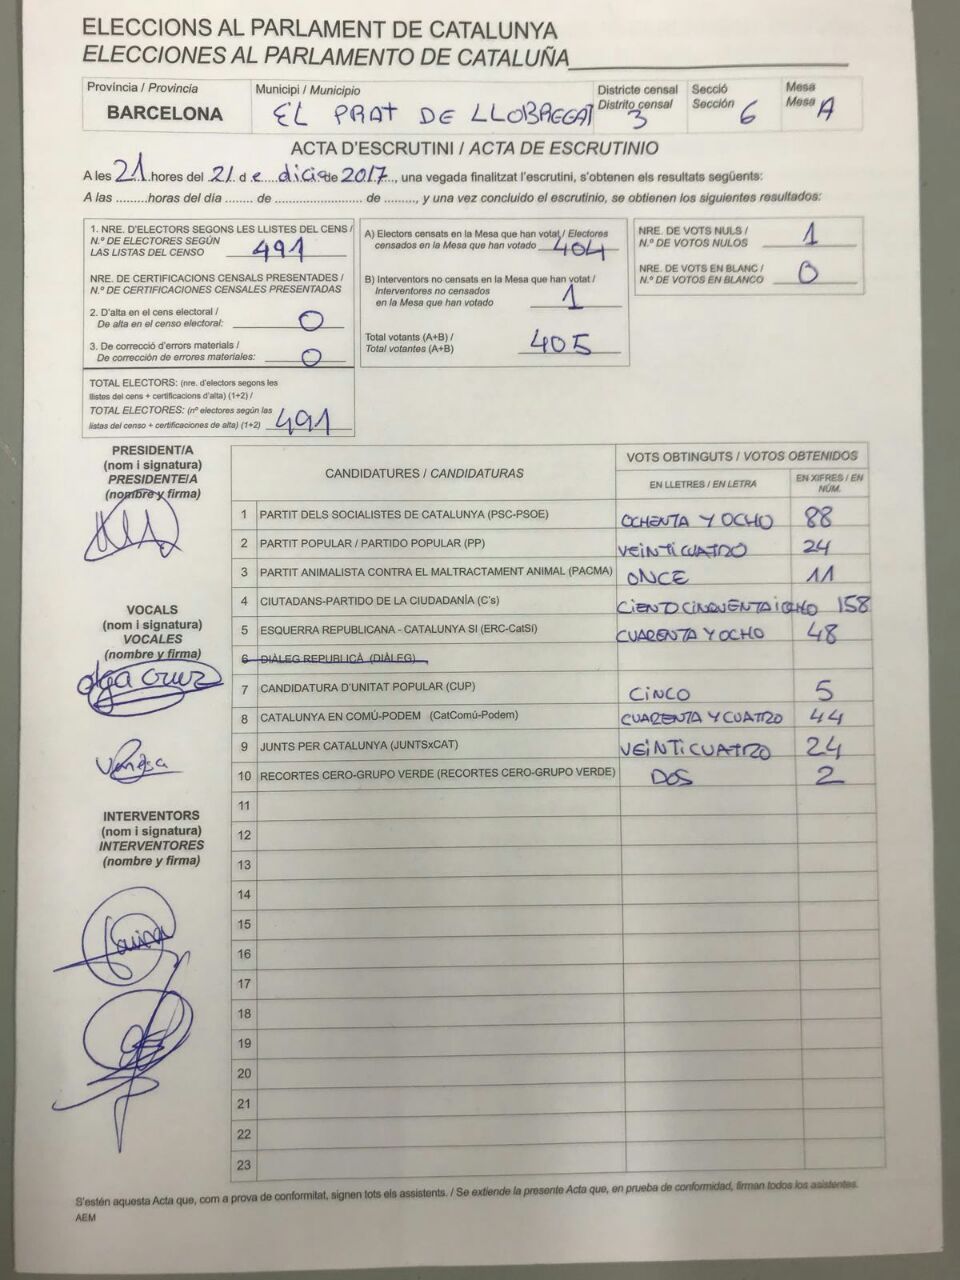 ELECCIONS AL PARLAMENT DE CATALUNYA
ELECCIONES AL PARLAMENTO DE CATALUÑA
Provincia / Provincia
BARCELONA
Municipi / Municipio
EL PRAT DE LLOBREGAT
Districte censal
Distrito censal
3
Secció
Sección
6
Mesa
Mesa
A
ACTA D'ESCRUTINI / ACTA DE ESCRUTINIO
A les 21 hores del 21 d e dicie de 2017, una vegada finalitzat l'escrutini, s'obtenen els resultats següents:
A las .........horas del día ........ de ......................... de ........., y una vez concluido el escrutinio, se obtienen los siguientes resultados:
1. NRE. D'ELECTORS SEGONS LES LLISTES DEL CENS /
N.º DE ELECTORES SEGÚN
LAS LISTAS DEL CENSO 491
NRE. DE CERTIFICACIONS CENSALS PRESENTADES /
N.º DE CERTIFICACIONES CENSALES PRESENTADAS
2. D'alta en el cens electoral /
De alta en el censo electoral: 0
3. De correcció d'errors materials /
De corrección de errores materiales: 0
TOTAL ELECTORS: (nre. d'electors segons les
llistes del cens + certificacions d'alta) (1+2) /
TOTAL ELECTORES: (nº electores según las
listas del censo + certificaciones de alta) (1+2) 491
A) Electors censats en la Mesa que han votat / Electores
censados en la Mesa que han votado 404
B) Interventors no censats en la Mesa que han votat /
Interventores no censados
en la Mesa que han votado 1
Total votants (A+B) /
Total votantes (A+B) 405
NRE. DE VOTS NULS /
N.º DE VOTOS NULOS 1
NRE. DE VOTS EN BLANC /
N.º DE VOTOS EN BLANCO 0
PRESIDENT/A
(nom i signatura)
PRESIDENTE/A
(nombre y firma)
VOCALS
(nom i signatura)
VOCALES
(nombre y firma)
Olga Cruz
Vanesa
INTERVENTORS
(nom i signatura)
INTERVENTORES
(nombre y firma)
CANDIDATURES / CANDIDATURAS
VOTS OBTINGUTS / VOTOS OBTENIDOS
EN LLETRES / EN LETRA
EN XIFRES / EN NÚM.
1 PARTIT DELS SOCIALISTES DE CATALUNYA (PSC-PSOE) OCHENTA Y OCHO 88
2 PARTIT POPULAR / PARTIDO POPULAR (PP) VEINTICUATRO 24
3 PARTIT ANIMALISTA CONTRA EL MALTRACTAMENT ANIMAL (PACMA) ONCE 11
4 CIUTADANS-PARTIDO DE LA CIUDADANÍA (C's) CIENTO CINQUENTA i OCHO 158
5 ESQUERRA REPUBLICANA - CATALUNYA SÍ (ERC-CatSí) CUARENTA Y OCHO 48
6 DIÀLEG REPUBLICÀ (DIÀLEG)
7 CANDIDATURA D'UNITAT POPULAR (CUP) CINCO 5
8 CATALUNYA EN COMÚ-PODEM (CatComú-Podem) CUARENTA Y CUATRO 44
9 JUNTS PER CATALUNYA (JUNTSxCAT) VEINTICUATRO 24
10 RECORTES CERO-GRUPO VERDE (RECORTES CERO-GRUPO VERDE) DOS 2
11
12
13
14
15
16
17
18
19
20
21
22
23
S'estén aquesta Acta que, com a prova de conformitat, signen tots els assistents. / Se extiende la presente Acta que, en prueba de conformidad, firman todos los asistentes.
AEM